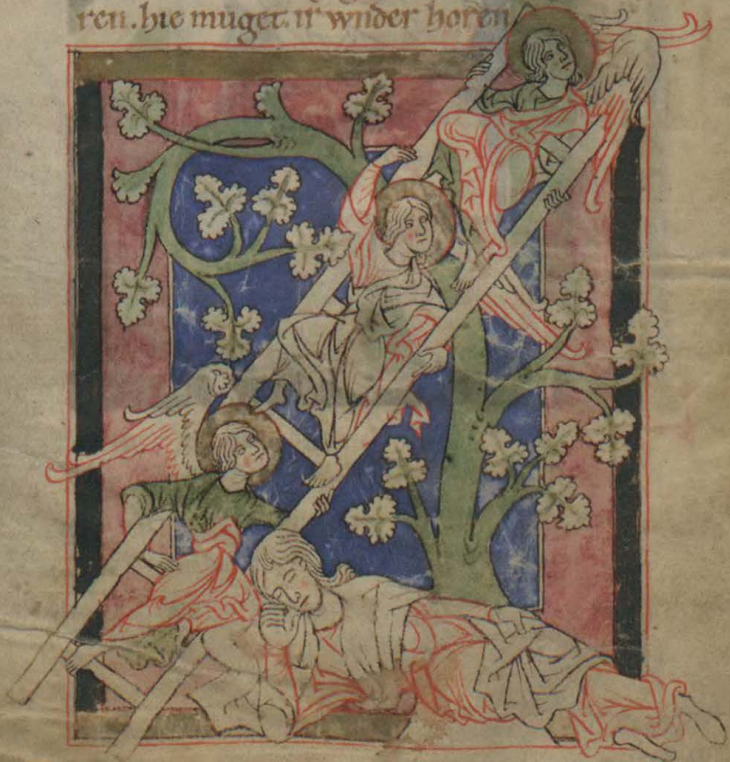 ren. hie muget ir wnder horen